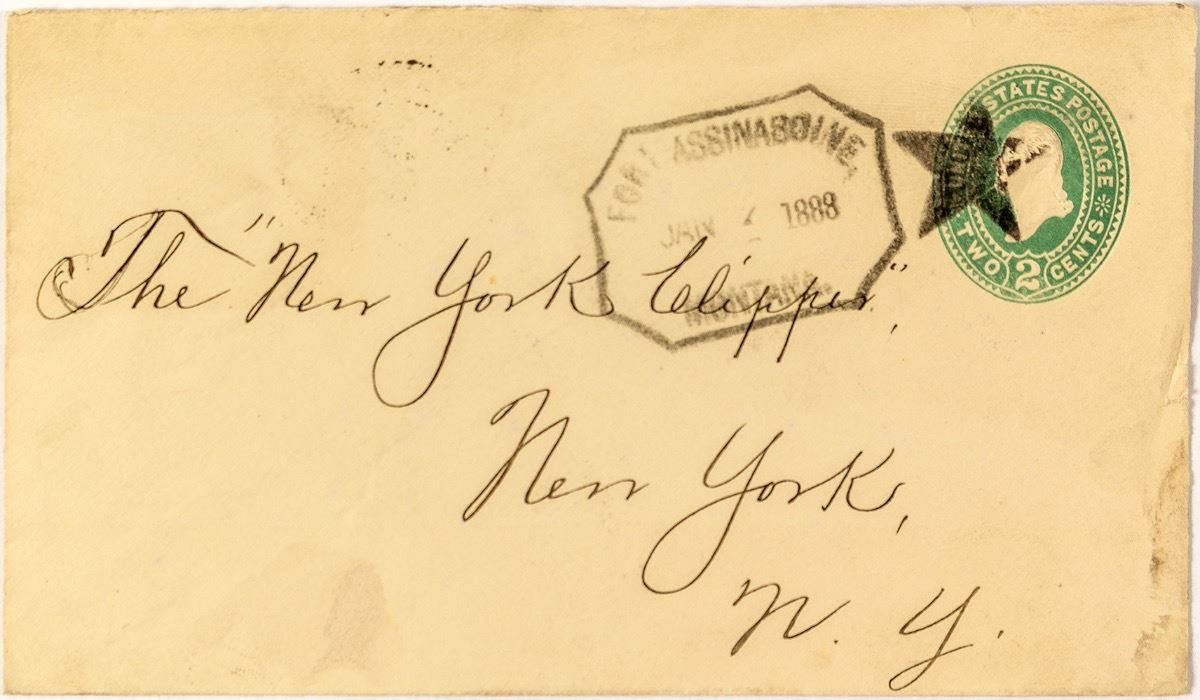 FORT ASSINABOINE,
JAN 1888
MONTANA.
UNITED STATES POSTAGE
TWO 2 CENTS
The "New York Clipper",
New York,
N. Y.